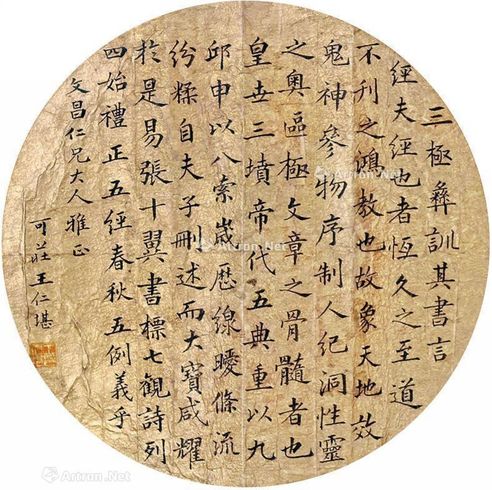 三極彝訓其書言
經夫經也者恆久之至道
不刊之鴻教也故象天地效
鬼神參物序制人紀洞性靈
之奧區極文章之骨髓者也
皇世三墳帝代五典重以九
邱申以八索歲歷線曖條流
紛糅自夫子刪述而大寶咸耀
於是易張十翼書標七觀詩列
四始禮正五經春秋五例義乎
文昌仁兄大人雅正
可莊王仁堪
Artron.Net